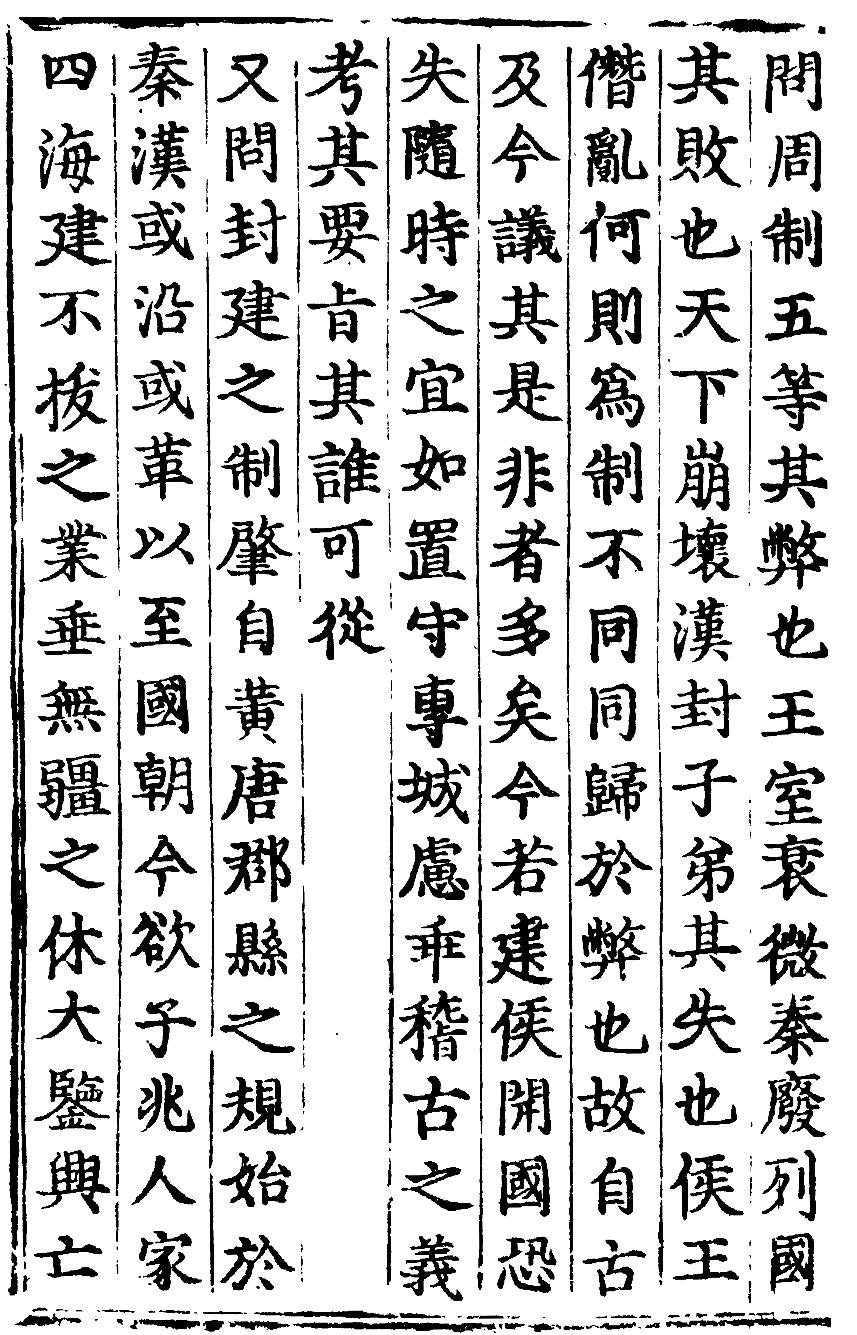 問周制五等其弊也王室衰微秦廢列國
其敗也天下崩壞漢封子弟其失也侯王
僭亂何則為制不同同歸於弊也故自古
及今議其是非者多矣今若建侯開國恐
失隨時之宜如置守專城慮乖稽古之義
考其要㫖其誰可從
又問封建之制肇自黃唐郡縣之規始於
秦漢或沿或革以至國朝今欲子兆人家
四海建不拔之業垂無疆之休大鑒興亡